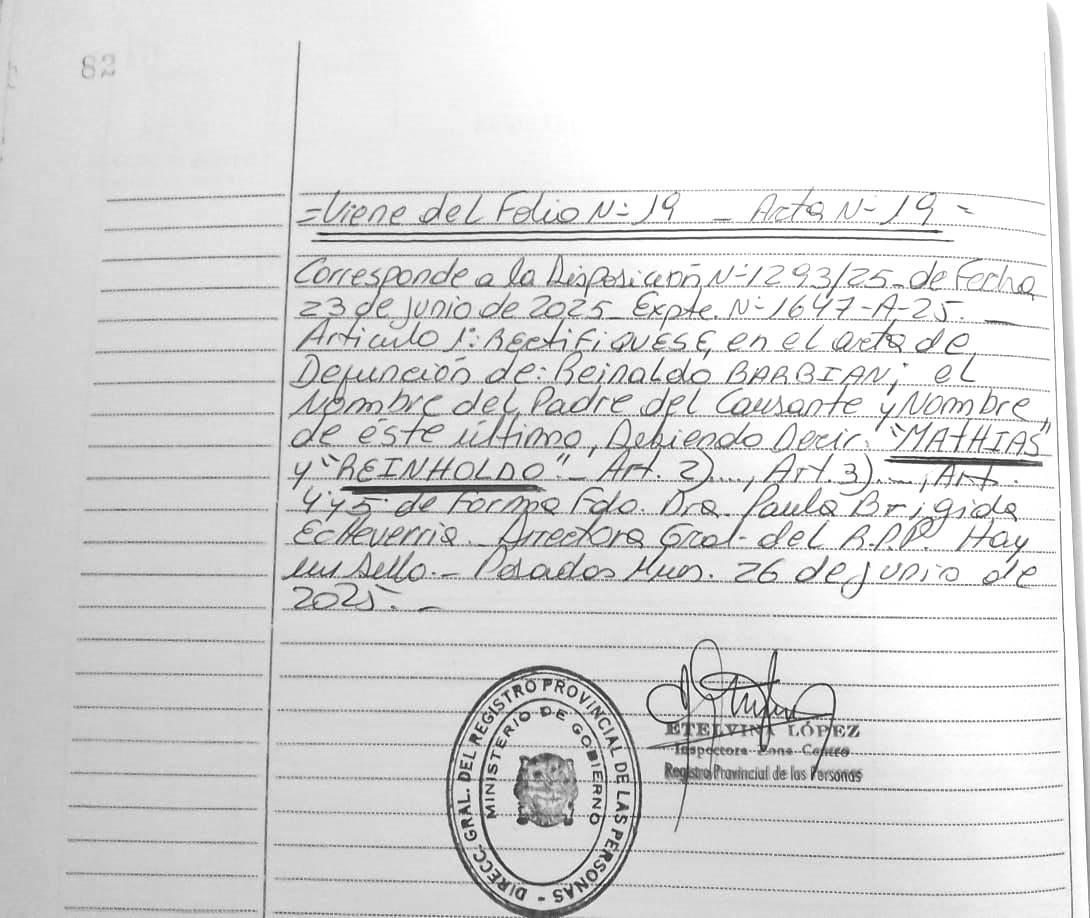 82
=Viene del Folio N- 19 _ Acta N- 19 =
Corresponde a la Disposición N-1293/25_ de Fecha
23 de junio de 2025_ Expte. N- 1647-A-25. _
Articulo 1: RectiFIQUESE, en el acta de
Defunción de: Reinaldo BARBIAN; el
Nombre del Padre del Causante y Nombre
de éste último, Debiendo Decir: "MATHIAS"
y "REINHOLDO" _ Art. 2)..., Art. 3)...., Art.
4y5 de Forma Fdo. Dra. Paula Brigida
Echeverria_ Directora Gral- del R.P.P. Hay
un sello._ Posadas Mnes. 26 de junio de
2025. _
DIRECC. GRAL. DEL REGISTRO PROVINCIAL DE LAS PERSONAS -
MINISTERIO DE GOBIERNO
ETELVINA LÓPEZ
Inspectora Zona Centro
Registro Provincial de las Personas